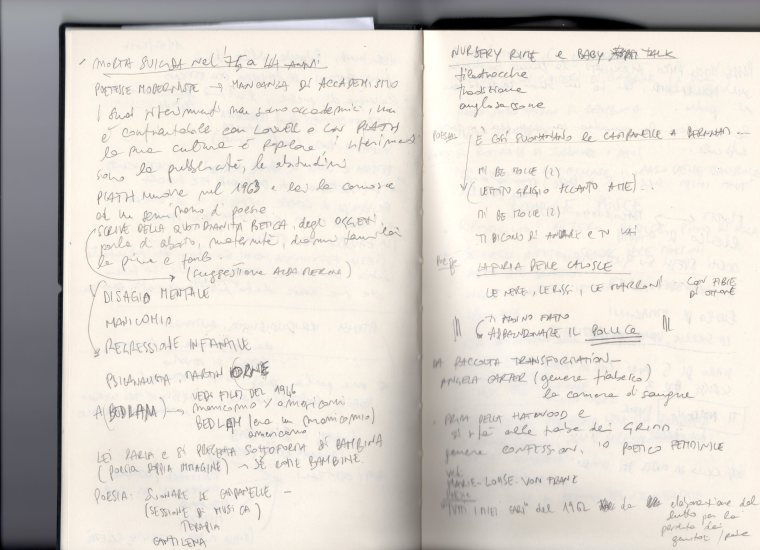 MORTA SUICIDA nel '75 a 44 anni
POETESSE MODERNISTE → MANCANZA DI ACCADEMISMO
I suoi riferimenti non sono accademici, ma
è confrontabile con LOWELL o con PLATH
la sua cultura è popolare i riferimenti
sono la pubblicità, le abitudini
PLATH muore nel 1963 e lei la conosce
ad un seminario di poesie
SCRIVE DELLA QUOTIDIANITÀ degli OGGETTI
parla di aborto, maternità, drammi familiari
la piuma e tanto.
(suggestione ALDA MERINI)
DISAGIO MENTALE
MANICOMIO
REGRESSIONE INFANTILE
PSICANALISTA MARTIN ORNE
VEDI FILM DEL 1946
A (BEDLAM) → manicomio x americani
BEDLAM (era un manicomio)
americano
LEI PARLA E SI PRESENTA SOTTOFORMA DI BAMBINA
(poesia doppia immagine) → SÉ COME BAMBINE
POESIA: SUONARE LE CAMPANELLE -
(SESSIONE DI MUSICA)
TERAPIA
CANTILENA
NURSERY RIME e BABY TALK
filastrocche
tradizione
anglosassone
POESIA E COSÌ SUONAVANO le CAMPANELLE A BEDLAM -
MI BE MOLLE (2)
(LETTO GRIGIO ACCANTO A ME)
MI BE MOLLE (2)
TI DICONO DI ANDARE E TU VAI
LA FURIA DELLE CALOSCE
LE NERE, LE ROSSE, LE MARRONI CON FIBIE
DI OTTONE
TI HANNO FATTO
ABBANDONARE IL POLLICE
LA RACCOLTA TRANSFORMATION -
ANGELA CARTER (genere fiabesco)
la camera di sangue
PRIMA DELLA HATWOOD e
si rifà alle fiabe dei GRIMM -
genere CONFESSION. IO POETICO FEMMINILE
vedi
MARIE-LOUISE VON FRANZ
"TUTTI I MIEI CARI" del 1962 da elaborazione del
lutto per la
perdita dei
genitori / padre